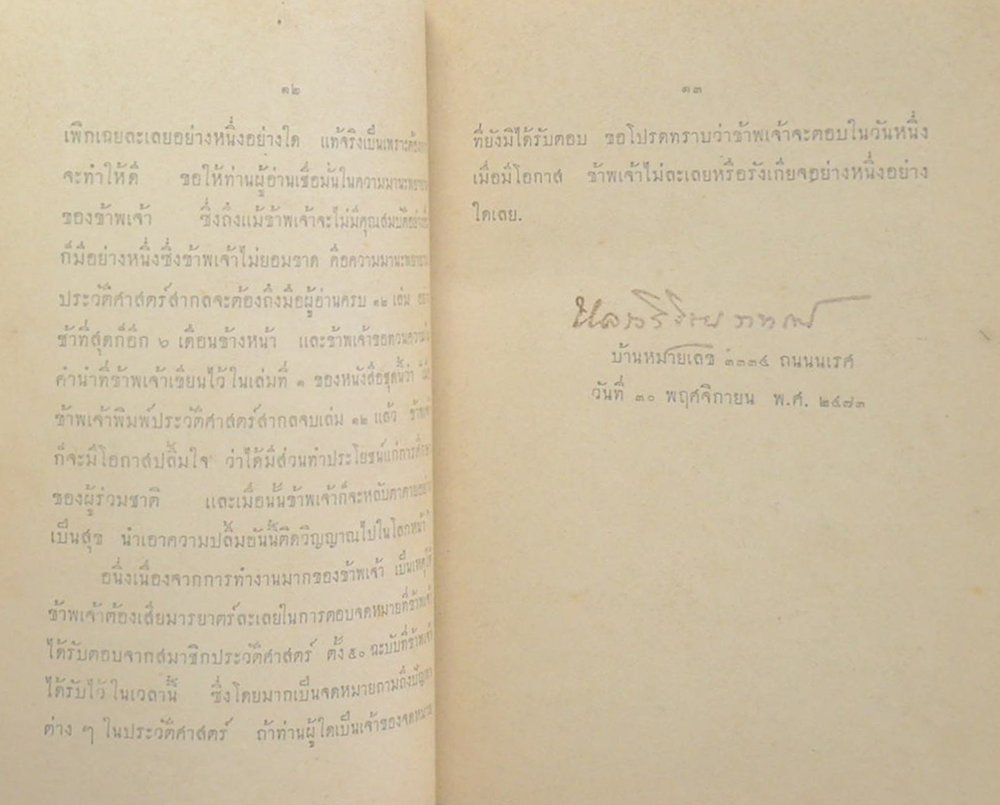 ๑๒
เพิกเฉยละเลยอย่างหนึ่งอย่างใด แท้จริงเป็นเพราะต้อง
จะทำให้ดี ขอให้ท่านผู้อ่านเชื่อมั่นในความมานะพยายาม
ของข้าพเจ้า ซึ่งถึงแม้ข้าพเจ้าจะไม่มีคุณสมบัติอย่าง
ก็มีอย่างหนึ่งซึ่งข้าพเจ้าไม่ยอมขาด คือความมานะพยายาม
ประวัติศาสตร์สากลจะต้องถึงมือผู้อ่านครบ ๑๒ เล่ม
ช้าที่สุดก็อีก ๖ เดือนข้างหน้า และข้าพเจ้าขอทวนความ
คำนำที่ข้าพเจ้าเขียนไว้ในเล่มที่ ๑ ของหนังสือชุดนี้ว่า
ข้าพเจ้าพิมพ์ประวัติศาสตร์สากลจบเล่ม ๑๒ แล้ว ข้าพเจ้า
ก็จะมีโอกาสปลื้มใจ ว่าได้มีส่วนทำประโยชน์แก่การศึกษา
ของผู้ร่วมชาติ และเมื่อนั้นข้าพเจ้าก็จะหลับตาตายอย่าง
เป็นสุข นำเอาความปลื้มอันนั้นติดวิญญาณไปในโลกหน้า
อนึ่งเนื่องจากการทำงานมากของข้าพเจ้า เป็นเหตุให้
ข้าพเจ้าต้องเสียมารยาตร์ละเลยในการตอบจดหมายที่ข้าพเจ้า
ได้รับตอบจากสมาชิกประวัติศาสตร์ ตั้ง ๕๐ ฉะบับที่ข้าพเจ้า
ได้รับไว้ในเวลานี้ ซึ่งโดยมากเป็นจดหมายถามถึงปัญหา
ต่าง ๆ ในประวัติศาสตร์ ถ้าท่านผู้ใดเป็นเจ้าของจดหมาย
๑๓
ที่ยังมิได้รับตอบ ขอโปรดทราบว่าข้าพเจ้าจะตอบในวันหนึ่ง
เมื่อมีโอกาส ข้าพเจ้าไม่ละเลยหรือรังเกียจอย่างหนึ่งอย่าง
ใดเลย.
หลวงวิจิตรวาทการ
บ้านหมายเลข ๑๓๓๔ ถนนนเรศ
วันที่ ๓๐ พฤศจิกายน พ.ศ. ๒๔๗๓